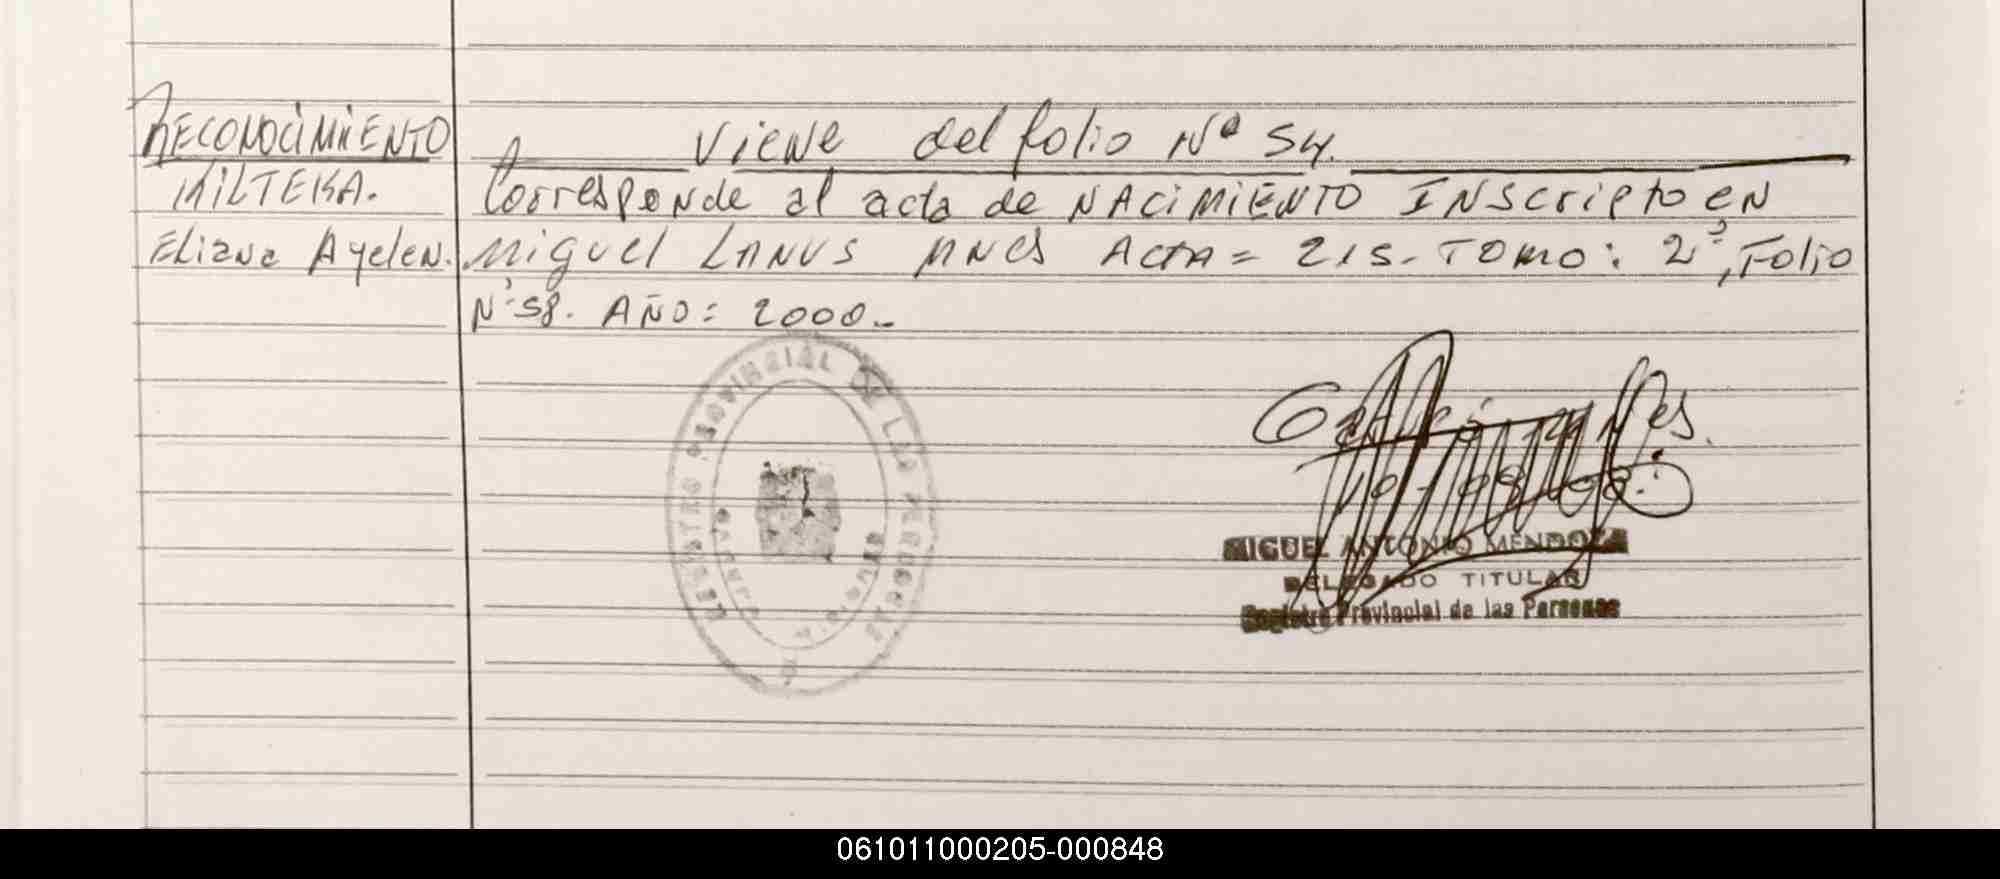 RECONOCIMIENTO
MILTEKA.
Eliana Ayelen.
Viene del folio Nº 54.
Corresponde al acta de NACIMIENTO INScripto eN
Miguel LANUS Acta = 215. TOMO: 2º, Folio
Nº 58. AÑO: 2000.
REGISTRO PROVINCIAL DE LAS PERSONAS
MIGUEL ANTONIO MENDOZA
DELEGADO TITULAR
Registro Provincial de las Personas
061011000205-000848